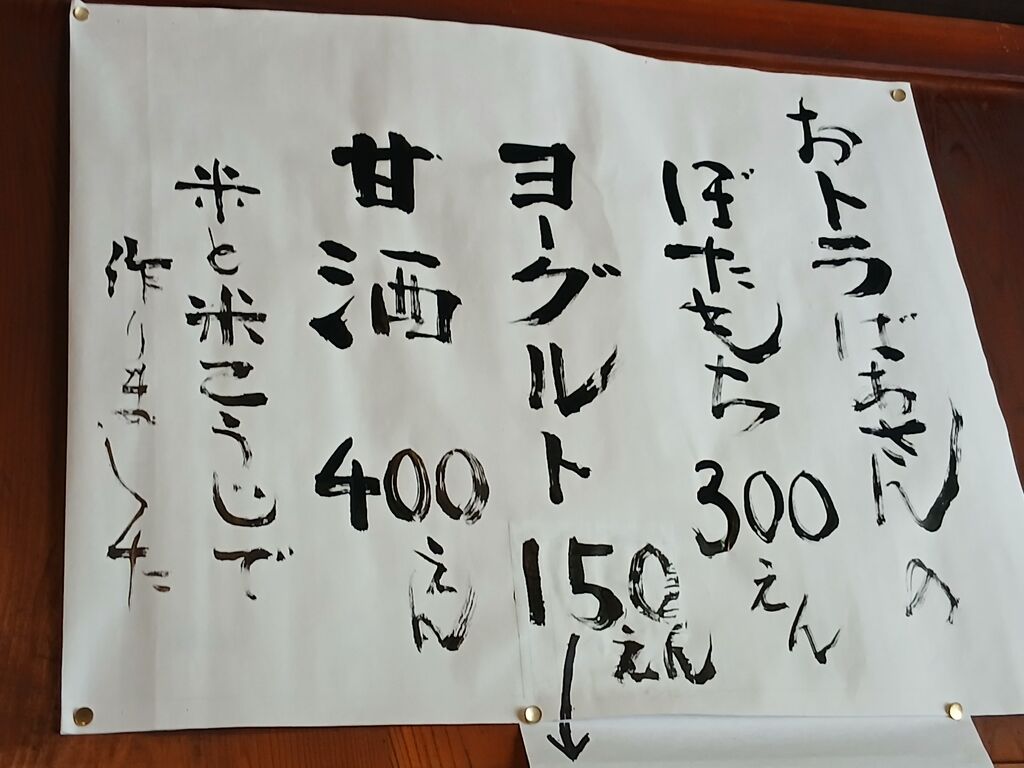 おトラばあさんの
ぼたもち 300えん
ヨーグルト 150えん
甘酒 400えん
米と米こうじで
作りました